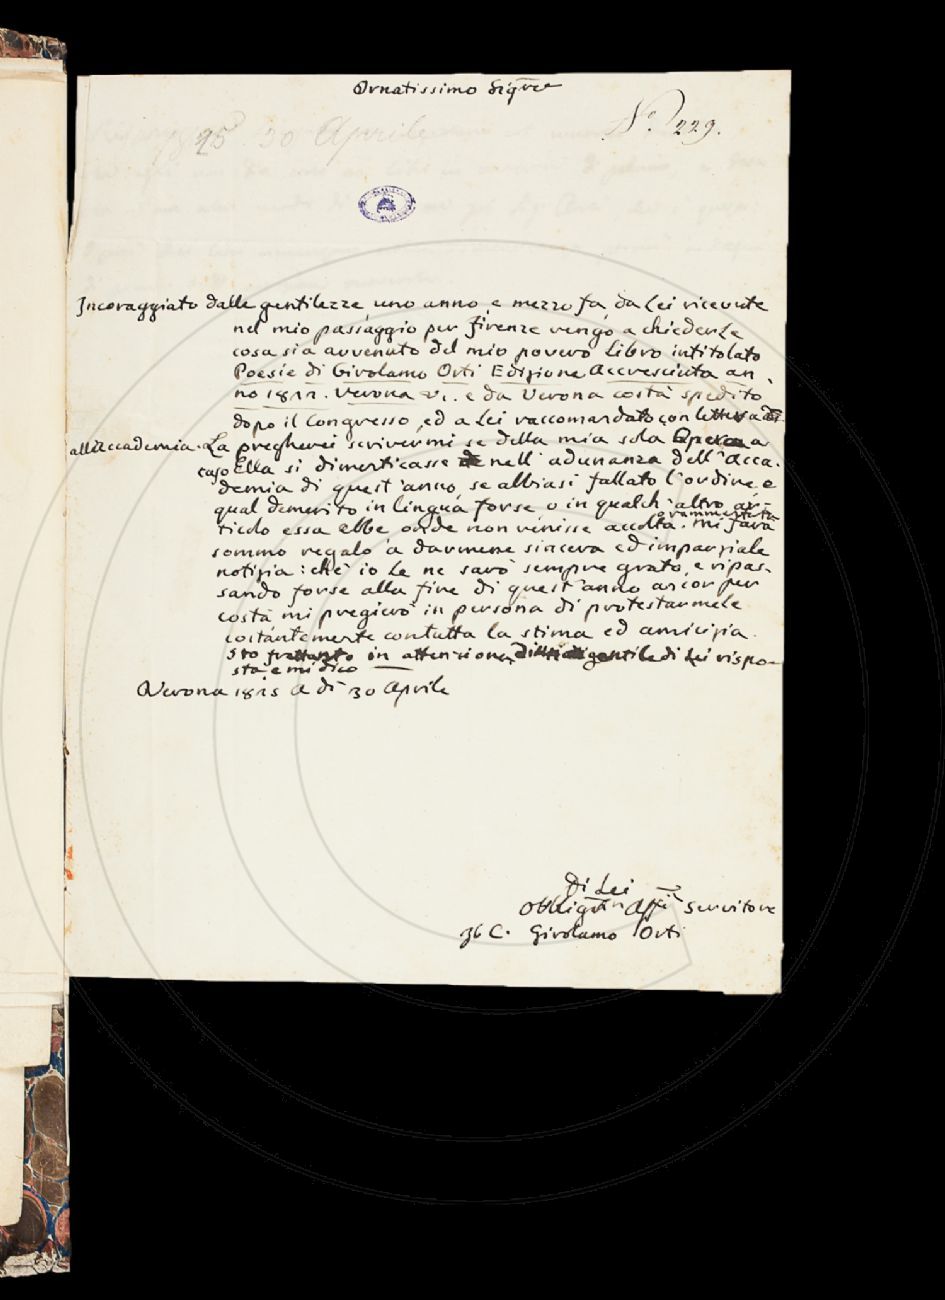 Ornatissimo Sigre
N.° 229.
25 30 Aprile
Incoraggiato dalle gentilezze, uno anno, e mezzo fa, da Lei ricevute
nel mio passaggio per firenze vengo a chiederle
cosa sia avvenuto del mio povero Libro intitolato
Poesie di Girolamo Orti Edizione Accresciuta an
no 1822. Verona VI. e da Verona costà spedito
dopo il Congresso, ed a Lei raccomandato con lettera
all'Accademia. La pregherei scrivermi se della mia sola Opera a
caso Ella si dimenticasse nell'adunanza dell'Acca-
demia di quest'anno, se abbiasi fallato l'ordine, e
qual demerito in Lingua forse o in qualch'altro ar-
ticolo essa ebbe onde non venisse accolta. Mi farà
sommo regalo a darmene sincera ed imparziale
notizia: chè io Le ne sarò sempre grato, e ripas-
sando forse alla fine di quest'anno ancor per
costà mi pregierò in persona di protestarmele
costantemente con tutta la stima ed amicizia.
Sto frattanto in attenzione gentile di Lei rispo-
sta, e mi dico
Verona 1825 a dì 30 Aprile
Di Lei
Obbligmo Affmo Servitore
C. Girolamo Orti